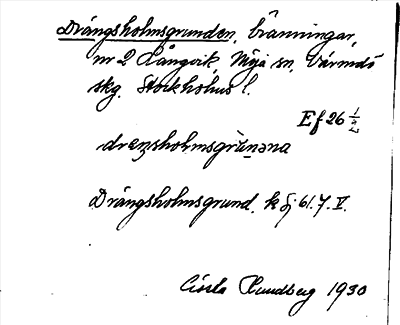 Drängsholmsgrunden, bränningar,
nr 2 Långvik, Möja sn, Värmdö
skg. Stockholms l.
Ef 26 1/2
drɛŋshɔlmsgrɯ́nəna
Drängsholmsgrund, k bj 61.7.V.
Gisela Rundberg 1930